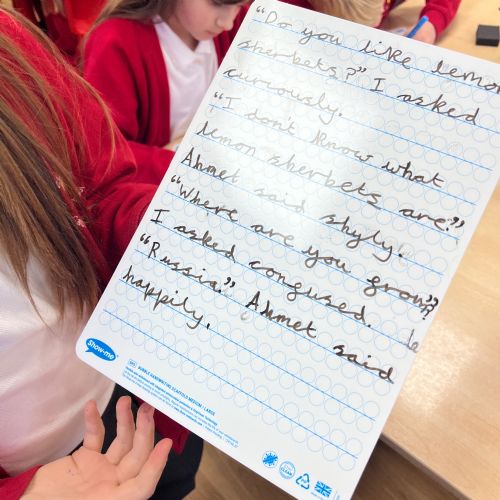 “Do you like lemon
sherbets?” I asked
curiously.
“I don't know what
lemon sherbets are?”
Ahmet said shyly.
“Where are you grow”?
I asked congused.
“Russia.” Ahmet said
happily.
Show-me
BUBBLE HANDWRITING SCAFFOLD MEDIUM - LARGE